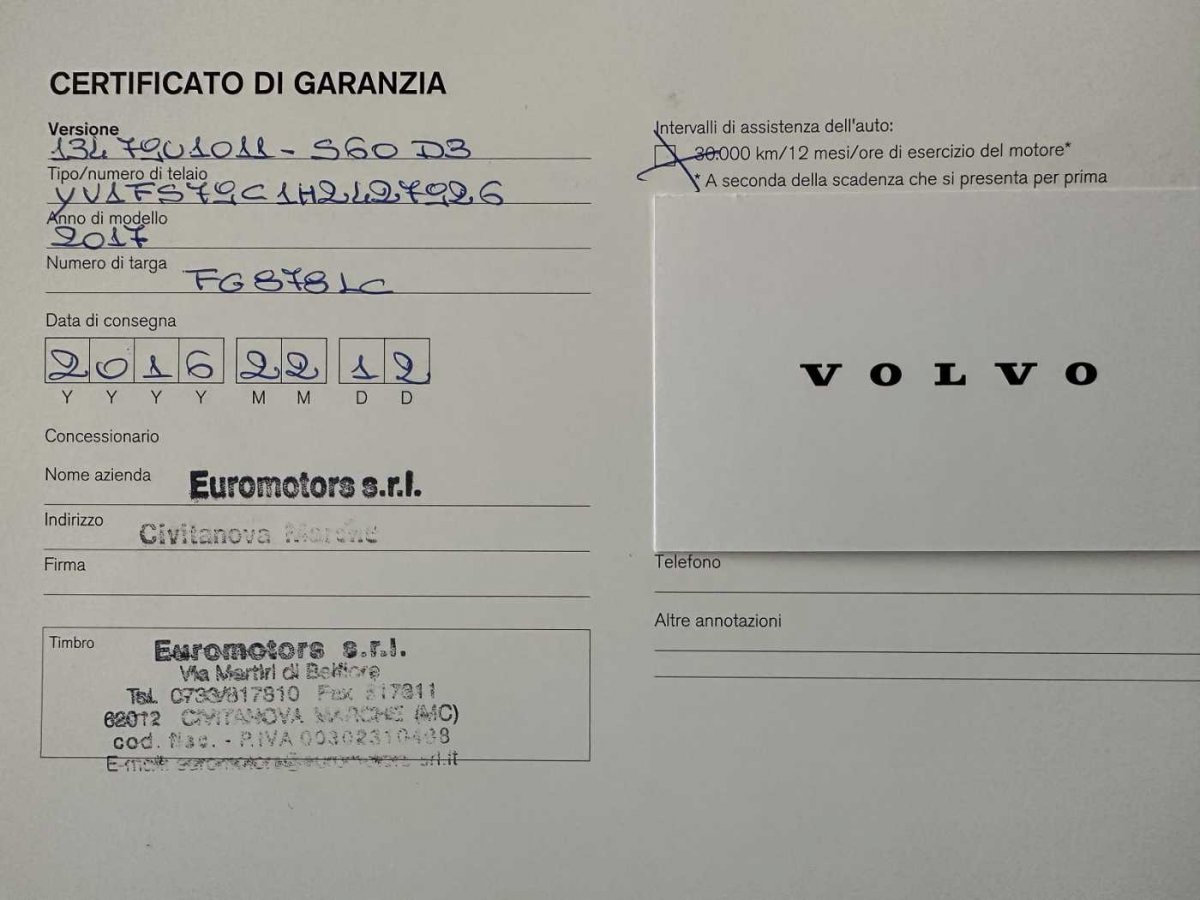 CERTIFICATO DI GARANZIA
Versione
134 79U1011 - S60 D3
Tipo/numero di telaio
YV1FS79C1H2427926
Anno di modello
2017
Numero di targa
FG878LC
Data di consegna
2016 22 12
Y Y Y Y M M D D
Concessionario
Nome azienda
Euromotors s.r.l.
Indirizzo
Civitanova Marche
Firma
Timbro
Euromotors s.r.l.
Via Martiri di Belfiore
Tel. 0733/817810 Fax 817811
62012 CIVITANOVA MARCHE (MC)
cod. fisc. - P.IVA
E-mail: euromotors@euromotors-srl.it
Intervalli di assistenza dell'auto:
30.000 km/12 mesi/ore di esercizio del motore*
* A seconda della scadenza che si presenta per prima
VOLVO
Telefono
Altre annotazioni